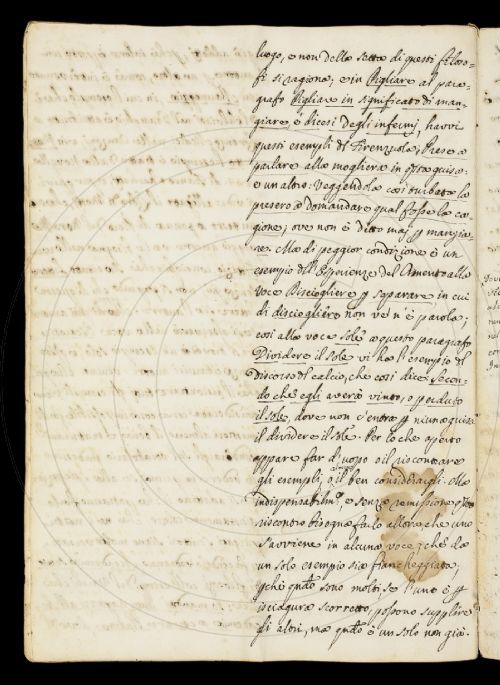 luogo, e non della setta di questi filoso-
fi si ragiona; e in Pigliare al para-
grafo Pigliare in significato di man-
giare, e dicesi degli infermi, havvi
questi esempli del Firenzuola, Prese a
parlare alla mogliera in questa guisa:
e un altro: Veggendola così turbata la
presero a domandare qual fosse la ca-
gione; ove non è ditta mai p mangia-
re. Ma di peggior condizione è un
esempio dell'Esperienze del Cimento alla
voce Disciogliere p separare in cui
di disciogliere non ve n'è parola;
così alla voce sole a questo paragrafo
Dividere il sole vi ha l'esempio del
Discorso del calcio, che così dice Secon-
do che egli averà vinto, o perduto
il sole, dove non c'entra p niuna guisa
il dividere il sole. Per lo che aperto
appare far di uopo o il riscontrare
gli esempli, o il ben considerargli. Ma
indispensabilme, e senza remissione
riscontro bisogna farlo allora che uno
s'avviene in alcuna voce, che da
un solo esempio sia fiancheggiata;
pchè qndo sono molti se l'uno è p
isciagura scorretto, possono supplire
gli altri, ma qndo è un solo non già.